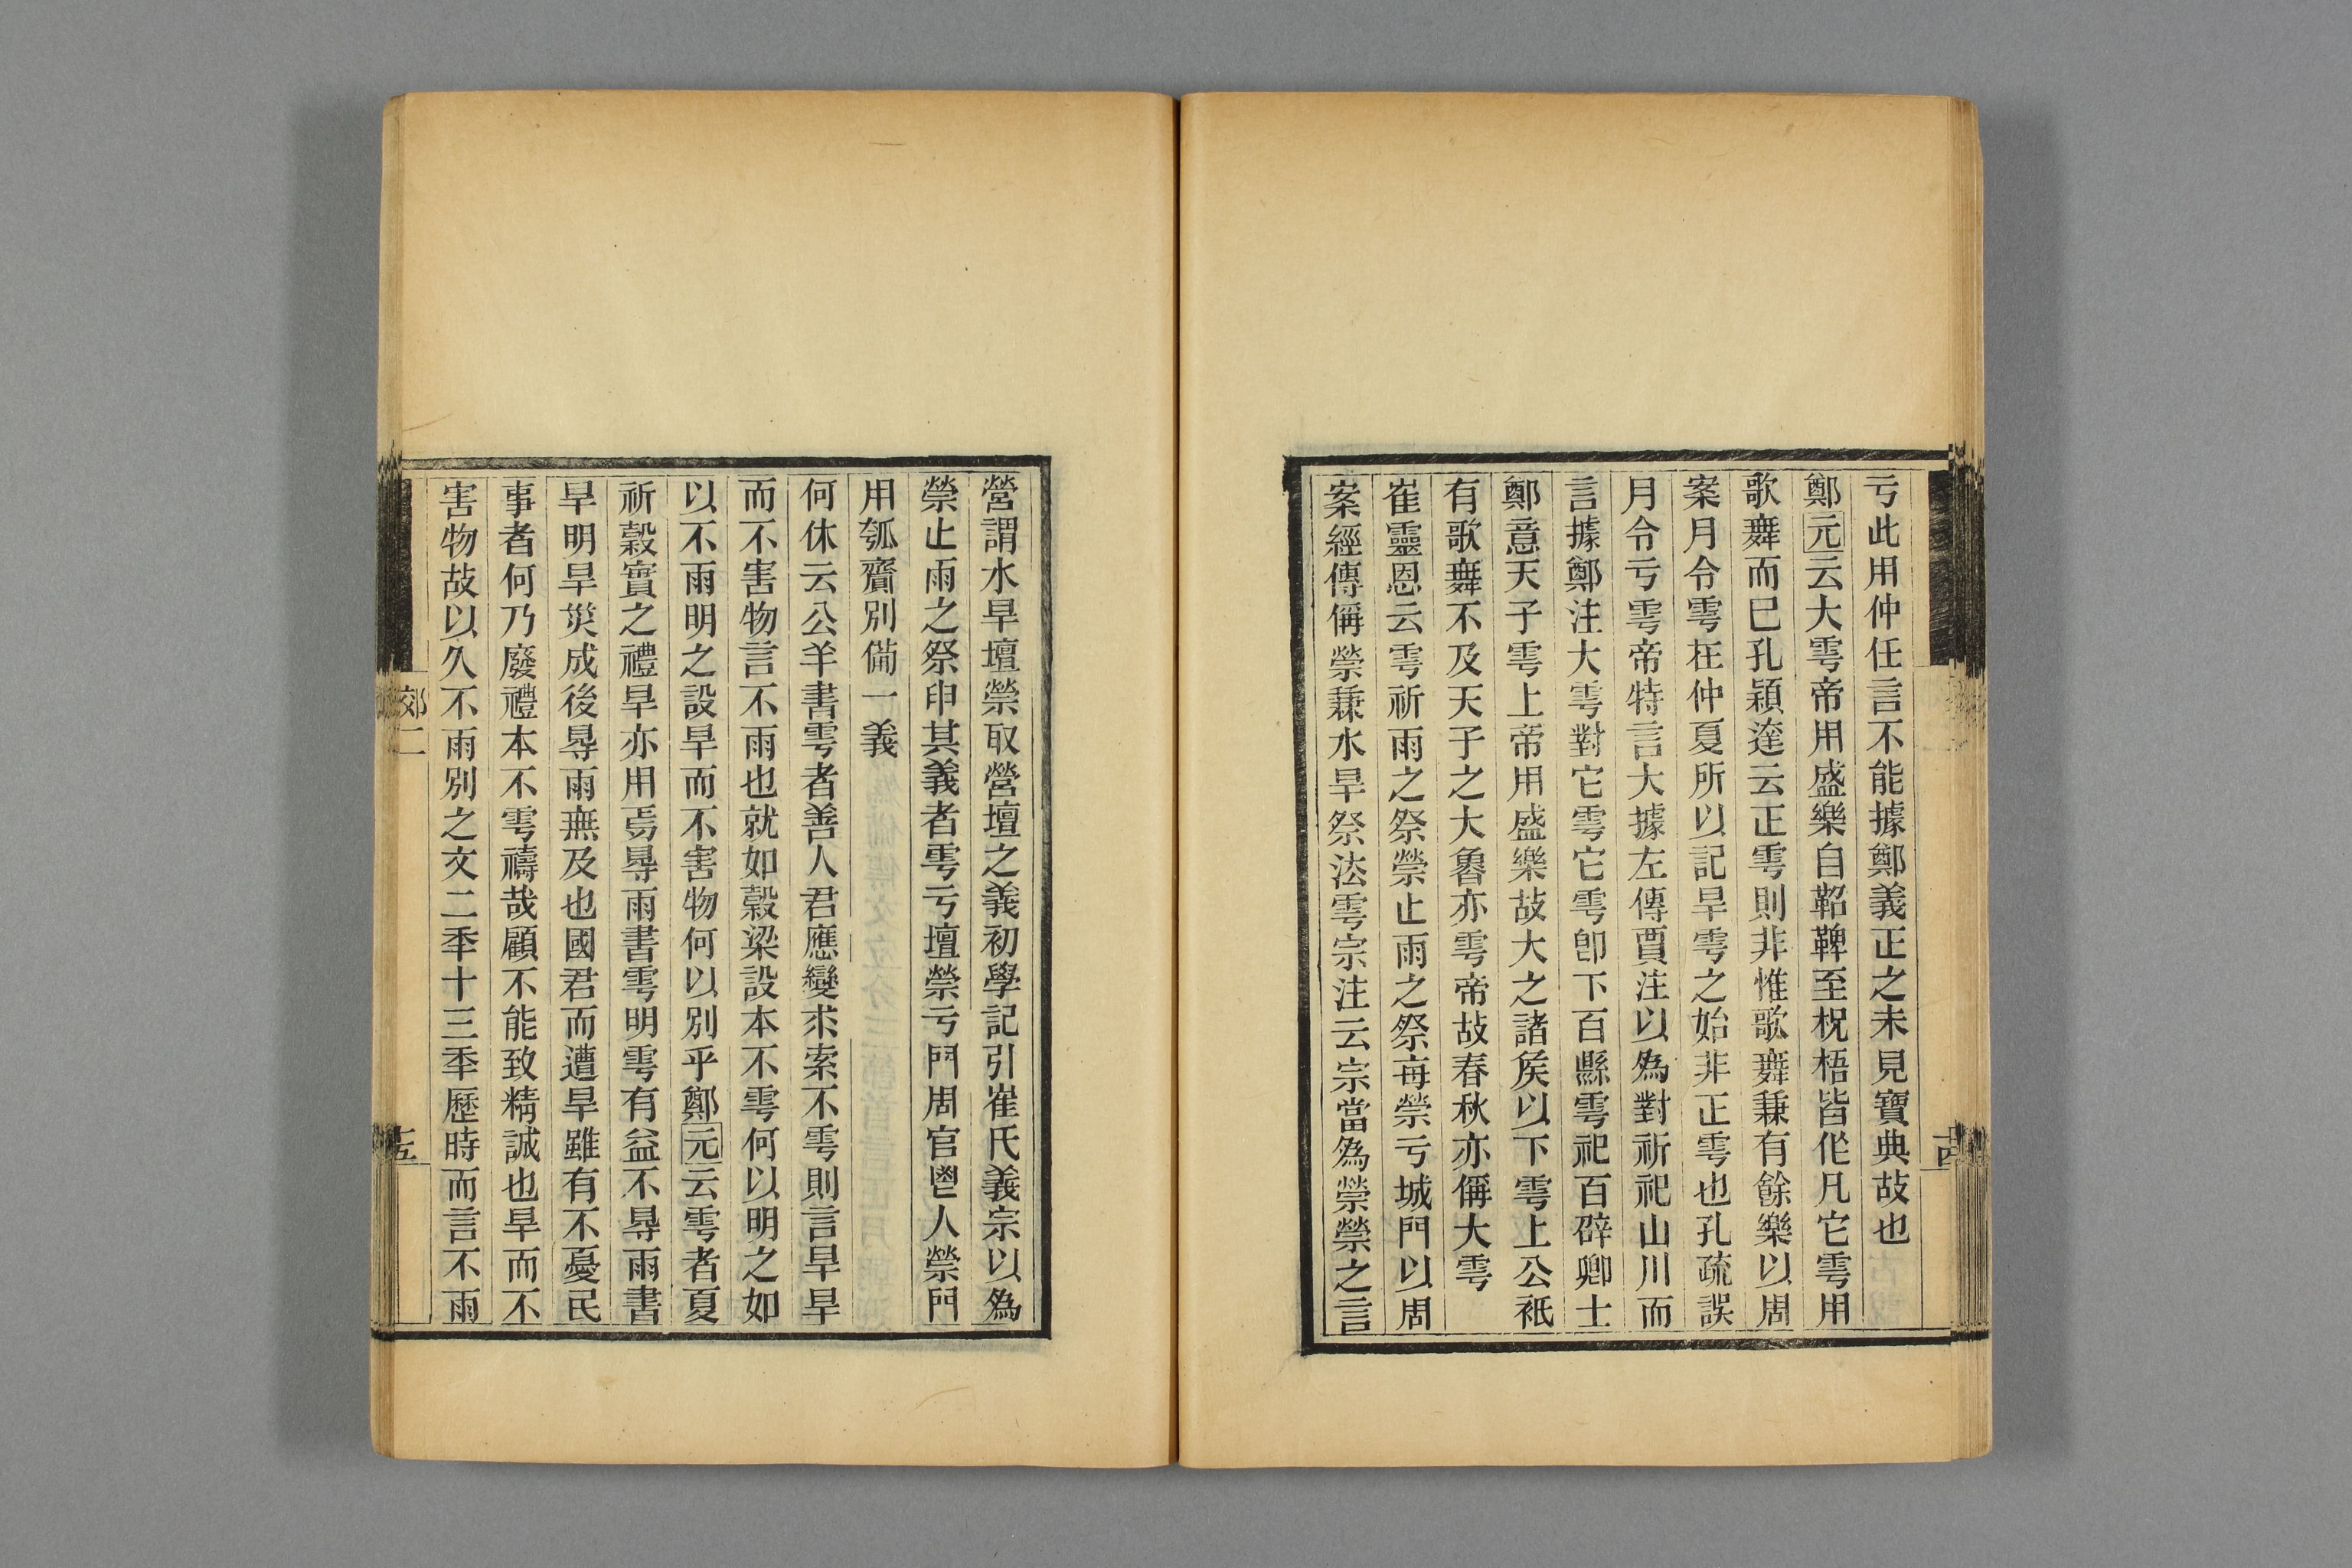 亏此用仲任言不能據鄭義正之未見寶典故也
鄭元云大雩帝用盛樂自鞀鞞至柷梧皆作凡它雩用
歌舞而已孔穎達云正雩則非惟歌舞兼有餘樂以周
案月令雩在仲夏所以記旱雩之始非正雩也孔疏誤
月令亏雩帝特言大據左傳賈注以爲對祈祀山川而
言據鄭注大雩對它雩它雩卽下百縣雩祀百辟卿士
鄭意天子雩上帝用盛樂故大之諸矦以下雩上公衹
有歌舞不及天子之大魯亦雩帝故春秋亦偁大雩
崔靈恩云雩祈雨之祭禜止雨之祭每禜亏城門以周
案經傳偁禜兼水旱祭法雩宗注云宗當爲禜禜之言
營謂水旱壇禜取營壇之義初學記引崔氏義宗以爲
禜止雨之祭申其義者雩亏壇禜亏門周官鬯人禜門
用瓠齎別備一義
何休云公羊書雩者善人君應變求索不雩則言旱旱
而不害物言不雨也就如穀梁設本不雩何以明之如
以不雨明之設旱而不害物何以別乎鄭元云雩者夏
祈穀實之禮旱亦用焉㝵雨書雩明雩有益不㝵雨書
旱明旱災成後㝵雨無及也國君而遭旱雖有不憂民
事者何乃廢禮本不雩禱哉顧不能致精誠也旱而不
害物故以久不雨別之文二秊十三秊歷時而言不雨
郊二
十五
十四